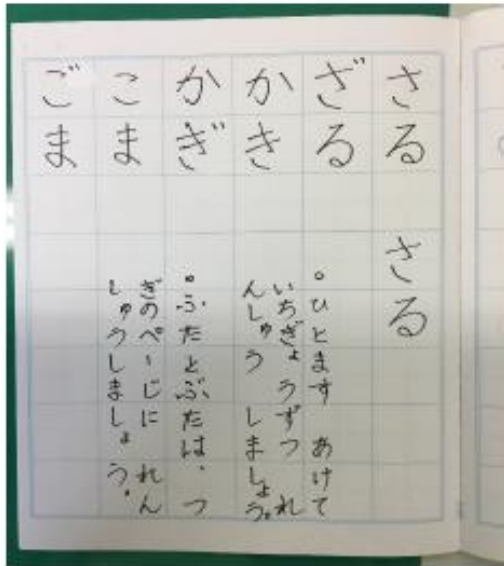 さる　さる
ざる
かき
かぎ
こま
ごま
。ひとます　あけて
いちぎょうずつ　れ
んしゅう　しましょう。
。ふたとぶたは、つ
ぎのぺーじに　れん
しゅうしましょう。